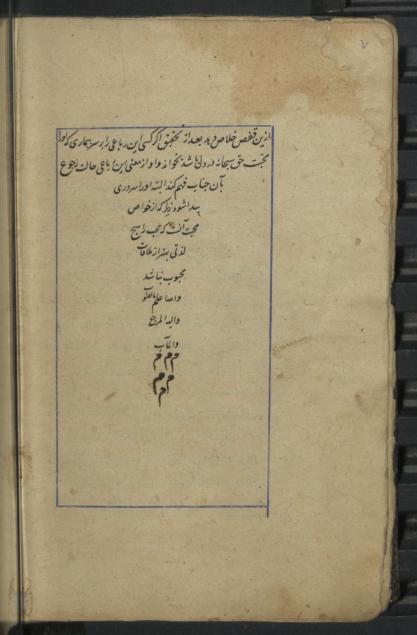 ۷
ازین قفص خلاص دهد بعد از تحقیق اگر کسی این رباعی را بر سر بیماری که نور
محبت حق سبحانه در دل باشد بخواند و او از معنی این رباعی حالت رجوع
بآن جناب فهم کند البته او را سروری
پیدا شود زیرا که از خواص
محبت آنست که محب را هیچ
لذتی بهتر از ملاقات
محبوب نباشد
والله اعلم
والیه المرجع
والمآب
م م م
م م
م